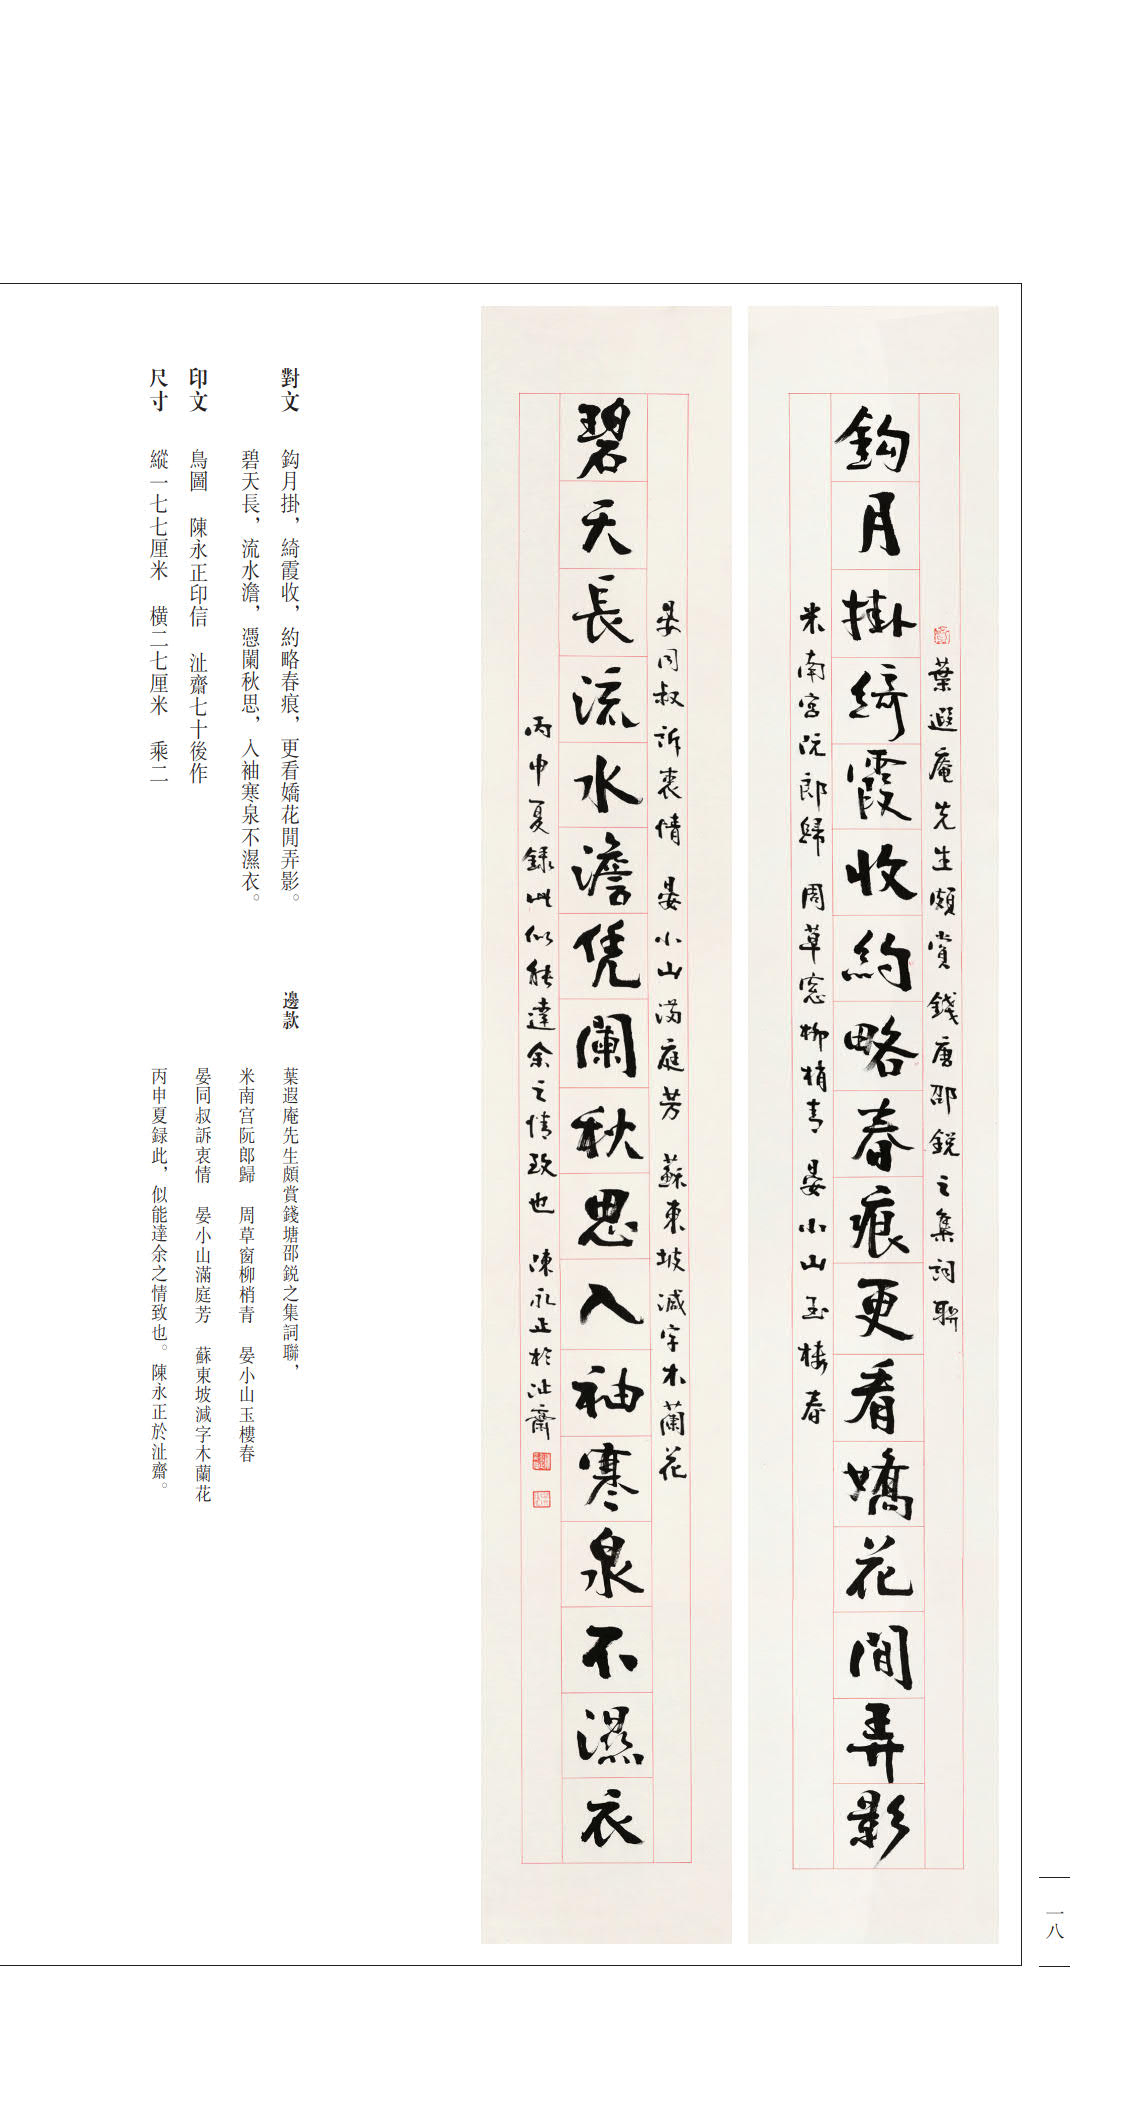 葉遐庵先生頗賞錢唐邵鋭之集詞聯
鈎月掛綺霞收約略春痕更看嬌花間弄影
米南宫阮郎歸 周草窓柳梢青 晏小山玉樓春
晏同叔訴衷情 晏小山滿庭芳 蘇東坡減字木蘭花
碧天長流水澹凭闌秋思入袖寒泉不濕衣
丙申夏録此似能達余之情致也 陳永正於沚齋
對文 鈎月掛，綺霞收，約略春痕，更看嬌花間弄影。
碧天長，流水澹，憑闌秋思，入袖寒泉不濕衣。
印文 鳥圖 陳永正印信 沚齋七十後作
尺寸 縱一七七厘米 橫二七厘米 乘二
邊款 葉遐庵先生頗賞錢塘邵鋭之集詞聯，
米南宫阮郎歸 周草窗柳梢青 晏小山玉樓春
晏同叔訴衷情 晏小山滿庭芳 蘇東坡減字木蘭花
丙申夏録此，似能達余之情致也。陳永正於沚齋。
一八